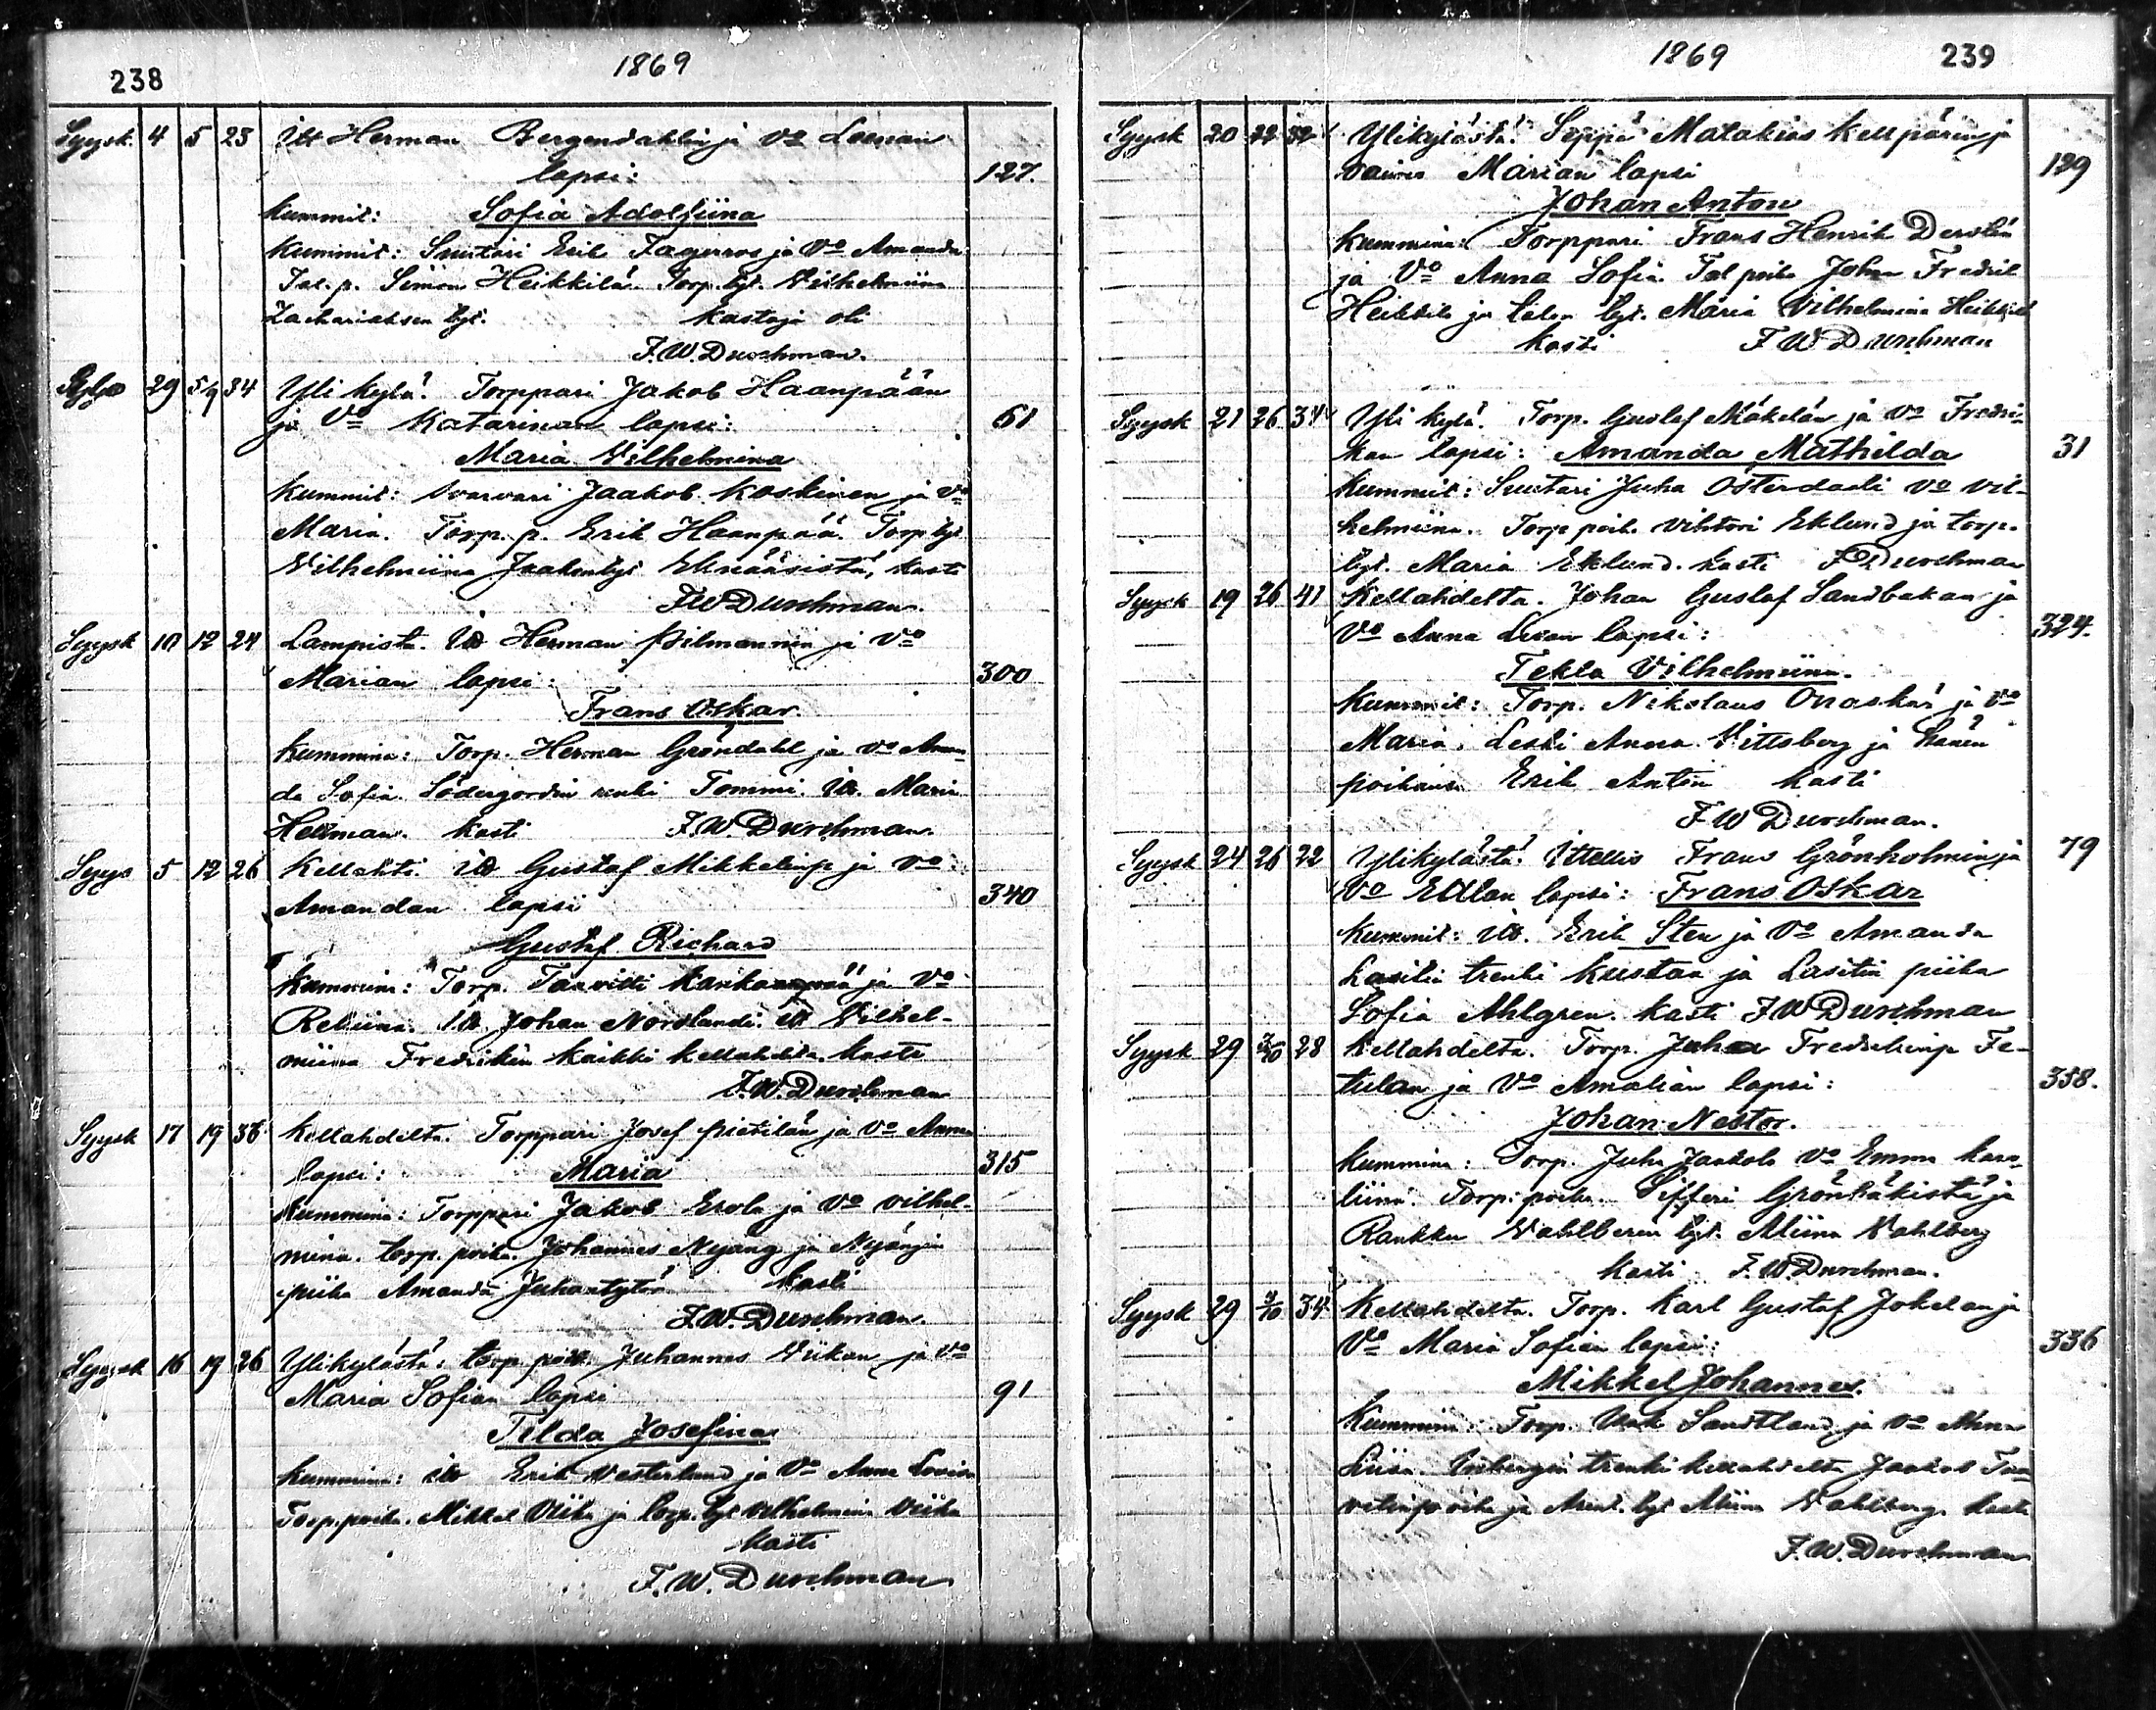 238
1869
Syysk. 4 5 23 Itt Herman Bergendahlin ja Vo Leenan
lapsi: 127.
Kummit: Sofia Adolfiina
Kummit: Suutari Erik Fagerroos ja Vo Amanda
Tal. p. Simon Heikkilä Torp. tyt. Wilhelmiina
Zachariaksen tyt. Kastaja oli
F.W. Durchman.
29 5/9 34 Yli kylä. Torppari Jakob Haanpään
ja Vo Katarinan lapsi: 61
Maria Wilhelmina
Kummit: Jaakob Koskinen ja Vo
Maria. Torp. p. Erik Haanpää. Torp tyt
Wilhelmiina kasti
F.W Durchman.
Syysk 10 12 24 Lampista. Itt Herman ja Vo
Marian lapsi: 300
Frans Oskar.
Kummina: Torp. Herman Gröndahl ja Vo Aman-
da Sofia. renki Tommi. Itt. Maria
Hellman. Kasti F.W. Durchman.
Syys 5 12 26 Kellahti. Itt Gustaf Mikkelinp ja Vo
Amandan lapsi 340
Gustaf Richard
Kummina: Torp. Taavitti Kankaanpää ja Vo
Itt. Johan Nordlandi. Itt Wilhel-
miina Fredrikin kaikki Kellahdelta. Kasti
F.W. Durchman
Syysk 17 19 36 Kellahdelta. Torppari Josef Pietilän ja Vo Annan
lapsi: Maria 315
Kummina: Torppari Jakob Erola ja Vo Vilhel-
mina. torp. poika. Johannes Nyäng ja Nyängin
piika Amanda Juhantytär Kasti
F.W. Durchman.
Syysk 16 19 26 Ylikylästä: torp. poik. Juhannes Wiikan ja Vo
Maria Sofian lapsi 91
Tilda Josefina
Kummina: Itt Erik Westerlund ja Vo Anna Lovisa
Torp. poika. Mikkel Viika ja torp. tyt Wilhelmina Viika
Kasti
F.W. Durchman
1869
239
Syysk 20 22 32 Ylikylästä. Seppä Matakias ja
vaimo Marian lapsi 129
Johan Anton
Kummina: Torppari Frans Henrik
ja Vo Anna Sofia. Tal poika Johan Fredrik
Heikkilä ja talon tyt. Maria Vilhelmina Heikkilä
Kasti F W Durchman
Syysk 21 26 34 Yli kylä. Torp. Gustaf Mäkelän ja Vo Fredri-
kan lapsi: Amanda Mathilda 31
Kummit: Suutari Juha Österdadi Vo Vil-
helmiina. Torp poik. Vihtori Eklund ja torp.
tyt. Maria Eklund. Kasti F W Durchman
Syysk 19 26 41 Kellahdelta. Johan Gustaf Sandbakan ja
Vo Anna Leenan lapsi: 324.
Tekla Vilhelmiina.
Kummit: Torp. Nikolaus Onaskär ja Vo
Maria. Leski Anna Vittsberg ja hänen
poikansa Erik Anton Kasti
F W Durchman.
Syysk 24 26 22 Ylikylästä. Itellis Frans Grönholmin ja 79
Vo Edlan lapsi: Frans Oskar
Kummit: Itt. Erik Sten ja Vo Amanda
trenki Kustaa ja piika
Sofia Ahlgren. Kasti F W Durchman
Syysk 29 3/10 28 Kellahdelta. Torp. Juha Fredrikinp
ja Vo Amalian lapsi: 358.
Johan Nestor.
Kummina: Torp. Juha Jaakola Vo Emma Karo-
liina. Torp. poika. Sifferi Grönbäkistä ja
Rankku Wahlberin tyt. Miina Wahlberg
Kasti F.W. Durchman.
Syysk 29 3/10 34 Kellahdelta. Torp. Karl Gustaf Jokelan ja
Vo Maria Sofian lapsi: 336
Mikkel Johannes.
Kummina: Torp. Sandtland ja Vo Anna
Liisa. trenki Kellahdelta Jaakob Taa-
vetinpoika ja tyt Miina Wahlberg. Kasti
F.W. Durchman